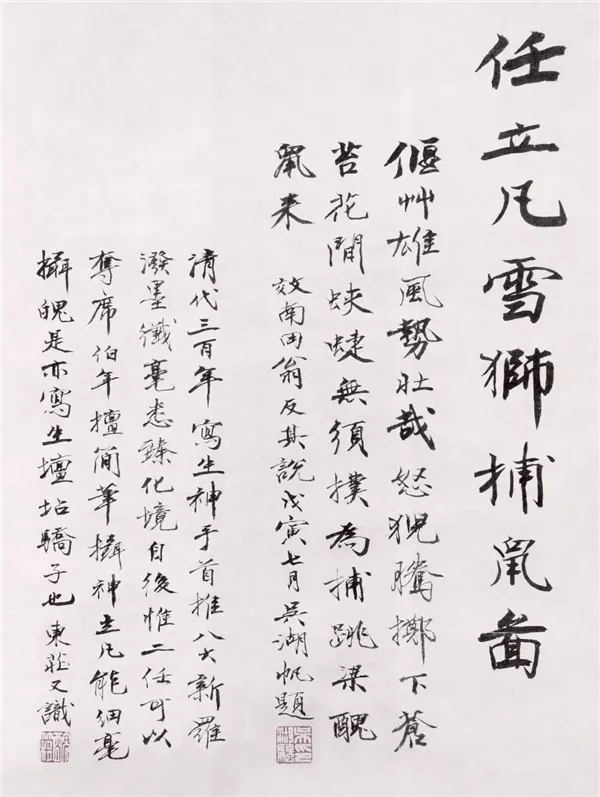 任立凡雪獅捕鼠圖
偃艸雄風勢壯哉怒猊騰擲下蒼
苔花間蛺蝶無須撲為捕跳梁醜
鼠来
效南田翁反其説戊寅七月吳湖帆題
清代三百年寫生神手首推八大新羅
潑墨纖毫悉臻化境自後惟二任可以
奪席伯年擅簡筆攝神立凡能細毫
攝魄是亦寫生壇坫驕子也東莊又識